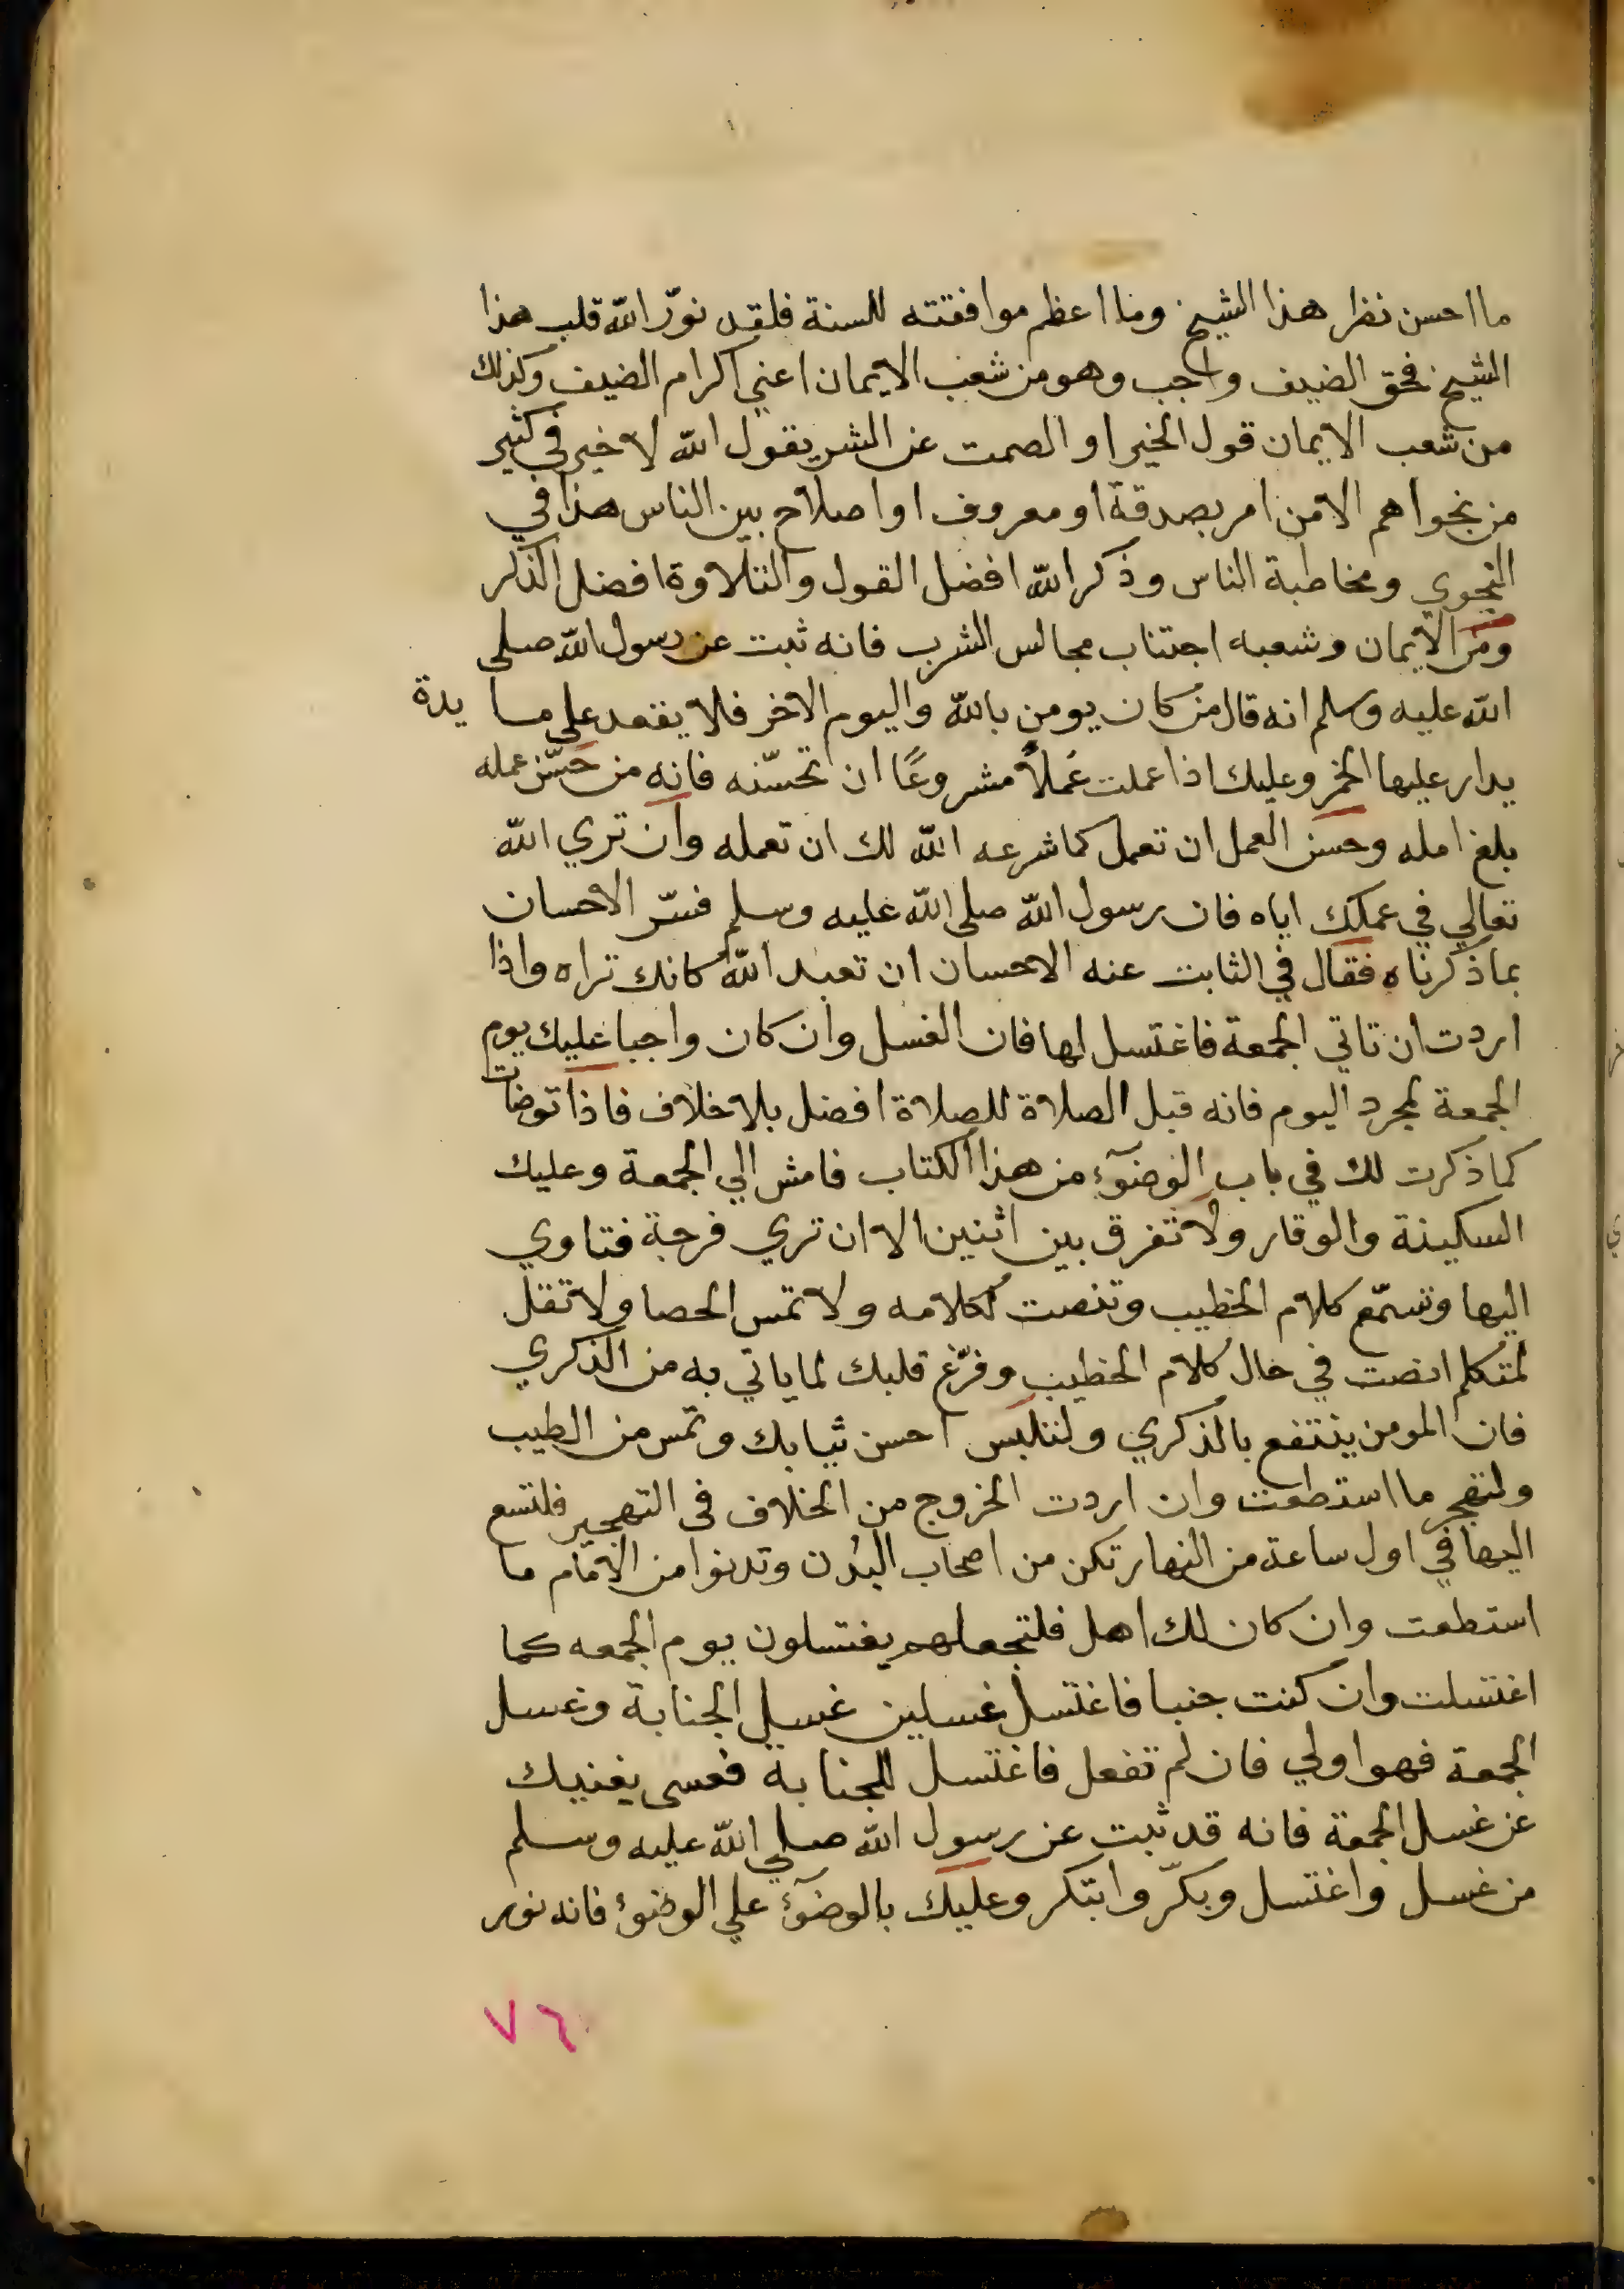 ما احسن نظر هذا الشيخ وما اعظم موافقته للسنة فلقد نوّر الله قلب هذا
الشيخ فحق الضيف واجب وهو من شعب الايمان اعني اكرام الضيف وكذلك
من شعب الايمان قول الخير او الصمت عن الشر يقول الله لا خير في كثير
من نجواهم الا من امر بصدقة او معروف او اصلاح بين الناس هذا في
النجوي ومخاطبة الناس وذكر الله افضل القول والتلاوة افضل الذكر
ومن الايمان وشعبه اجتناب مجالس الشرب فانه ثبت عن رسول الله صلى
الله عليه وسلم انه قال من كان يومن بالله واليوم الاخر فلا يقعد على ما يدة
يدار عليها الخمر وعليك اذا عملت عَملاً مشروعًا ان تحسّنه فانه من حسّن عمله
بلغ امله وحسن العمل ان تعمل كما شرعه الله لك ان تعمله وان تري الله
تعالي في عملك اياه فان رسول الله صلى الله عليه وسلم فسّر الاحسان
بما ذكرناه فقال في الثابت عنه الاحسان ان تعبد الله كانك تراه واذا
اردت ان تاتي الجمعة فاغتسل لها فان الغسل وان كان واجبا عليك يوم
الجمعة لمجرد اليوم فانه قبل الصلاة للصلاة افضل بلا خلاف فاذا توضات
كما ذكرت لك في باب الوضوٓء من هذا الكتاب فامش الي الجمعة وعليك
السكينة والوقار ولا تفرق بين اثنين الا ان تري فرجة فتاوي
اليها وتسمّع كلام الخطيب وتنصت لكلامه ولا تمس الحصا ولا تقل
لمتكلم انصت في حال كلام الخطيب وفرّغ قلبك لما ياتي به من الذكري
فان المومن ينتفع بالذكري ولتلبس احسن ثيابك وتمس من الطيب
ولتهجر ما استطعت وان اردت الخروج من الخلاف في التهجير فلتسع
اليها في اول ساعة من النهار تكن من اصحاب البُدن وتدنوا من الامام ما
استطعت وان كان لك اهل فلتجعلهم يغتسلون يوم الجمعه كما
اغتسلت وان كنت جنبا فاغتسل غسلين غسل الجنابة وغسل
الجمعة فهو اولي فان لم تفعل فاغتسل للجنابة فعسى يغنيك
عن غسل الجمعة فانه قد ثبت عن رسول الله صلي الله عليه وسلم
من غسل واغتسل وبكّر وابتكر وعليك بالوضوٓء علي الوضوء فانه نور
٧٦